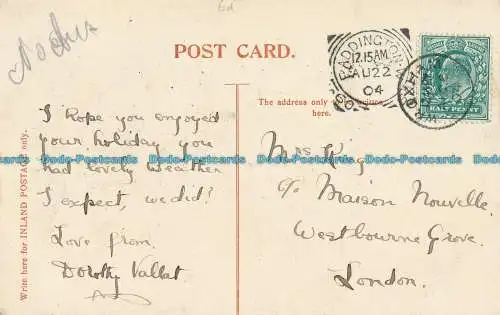 6d
POST CARD.
PADDINGTON. W
12.15AM
AU 22
04
The address only to be written
here.
Write here for INLAND POSTAGE only.
I hope you enjoyed
your holiday you
had lovely weather
I expect, we did?
Love from
Dorothy Vallat
Mrs King
c/o Maison Nouvelle.
Westbourne Grove.
London.
Dodo-Postcards Dodo-Postcards Dodo-Postcards Dodo-Postcards Dodo-Postcards